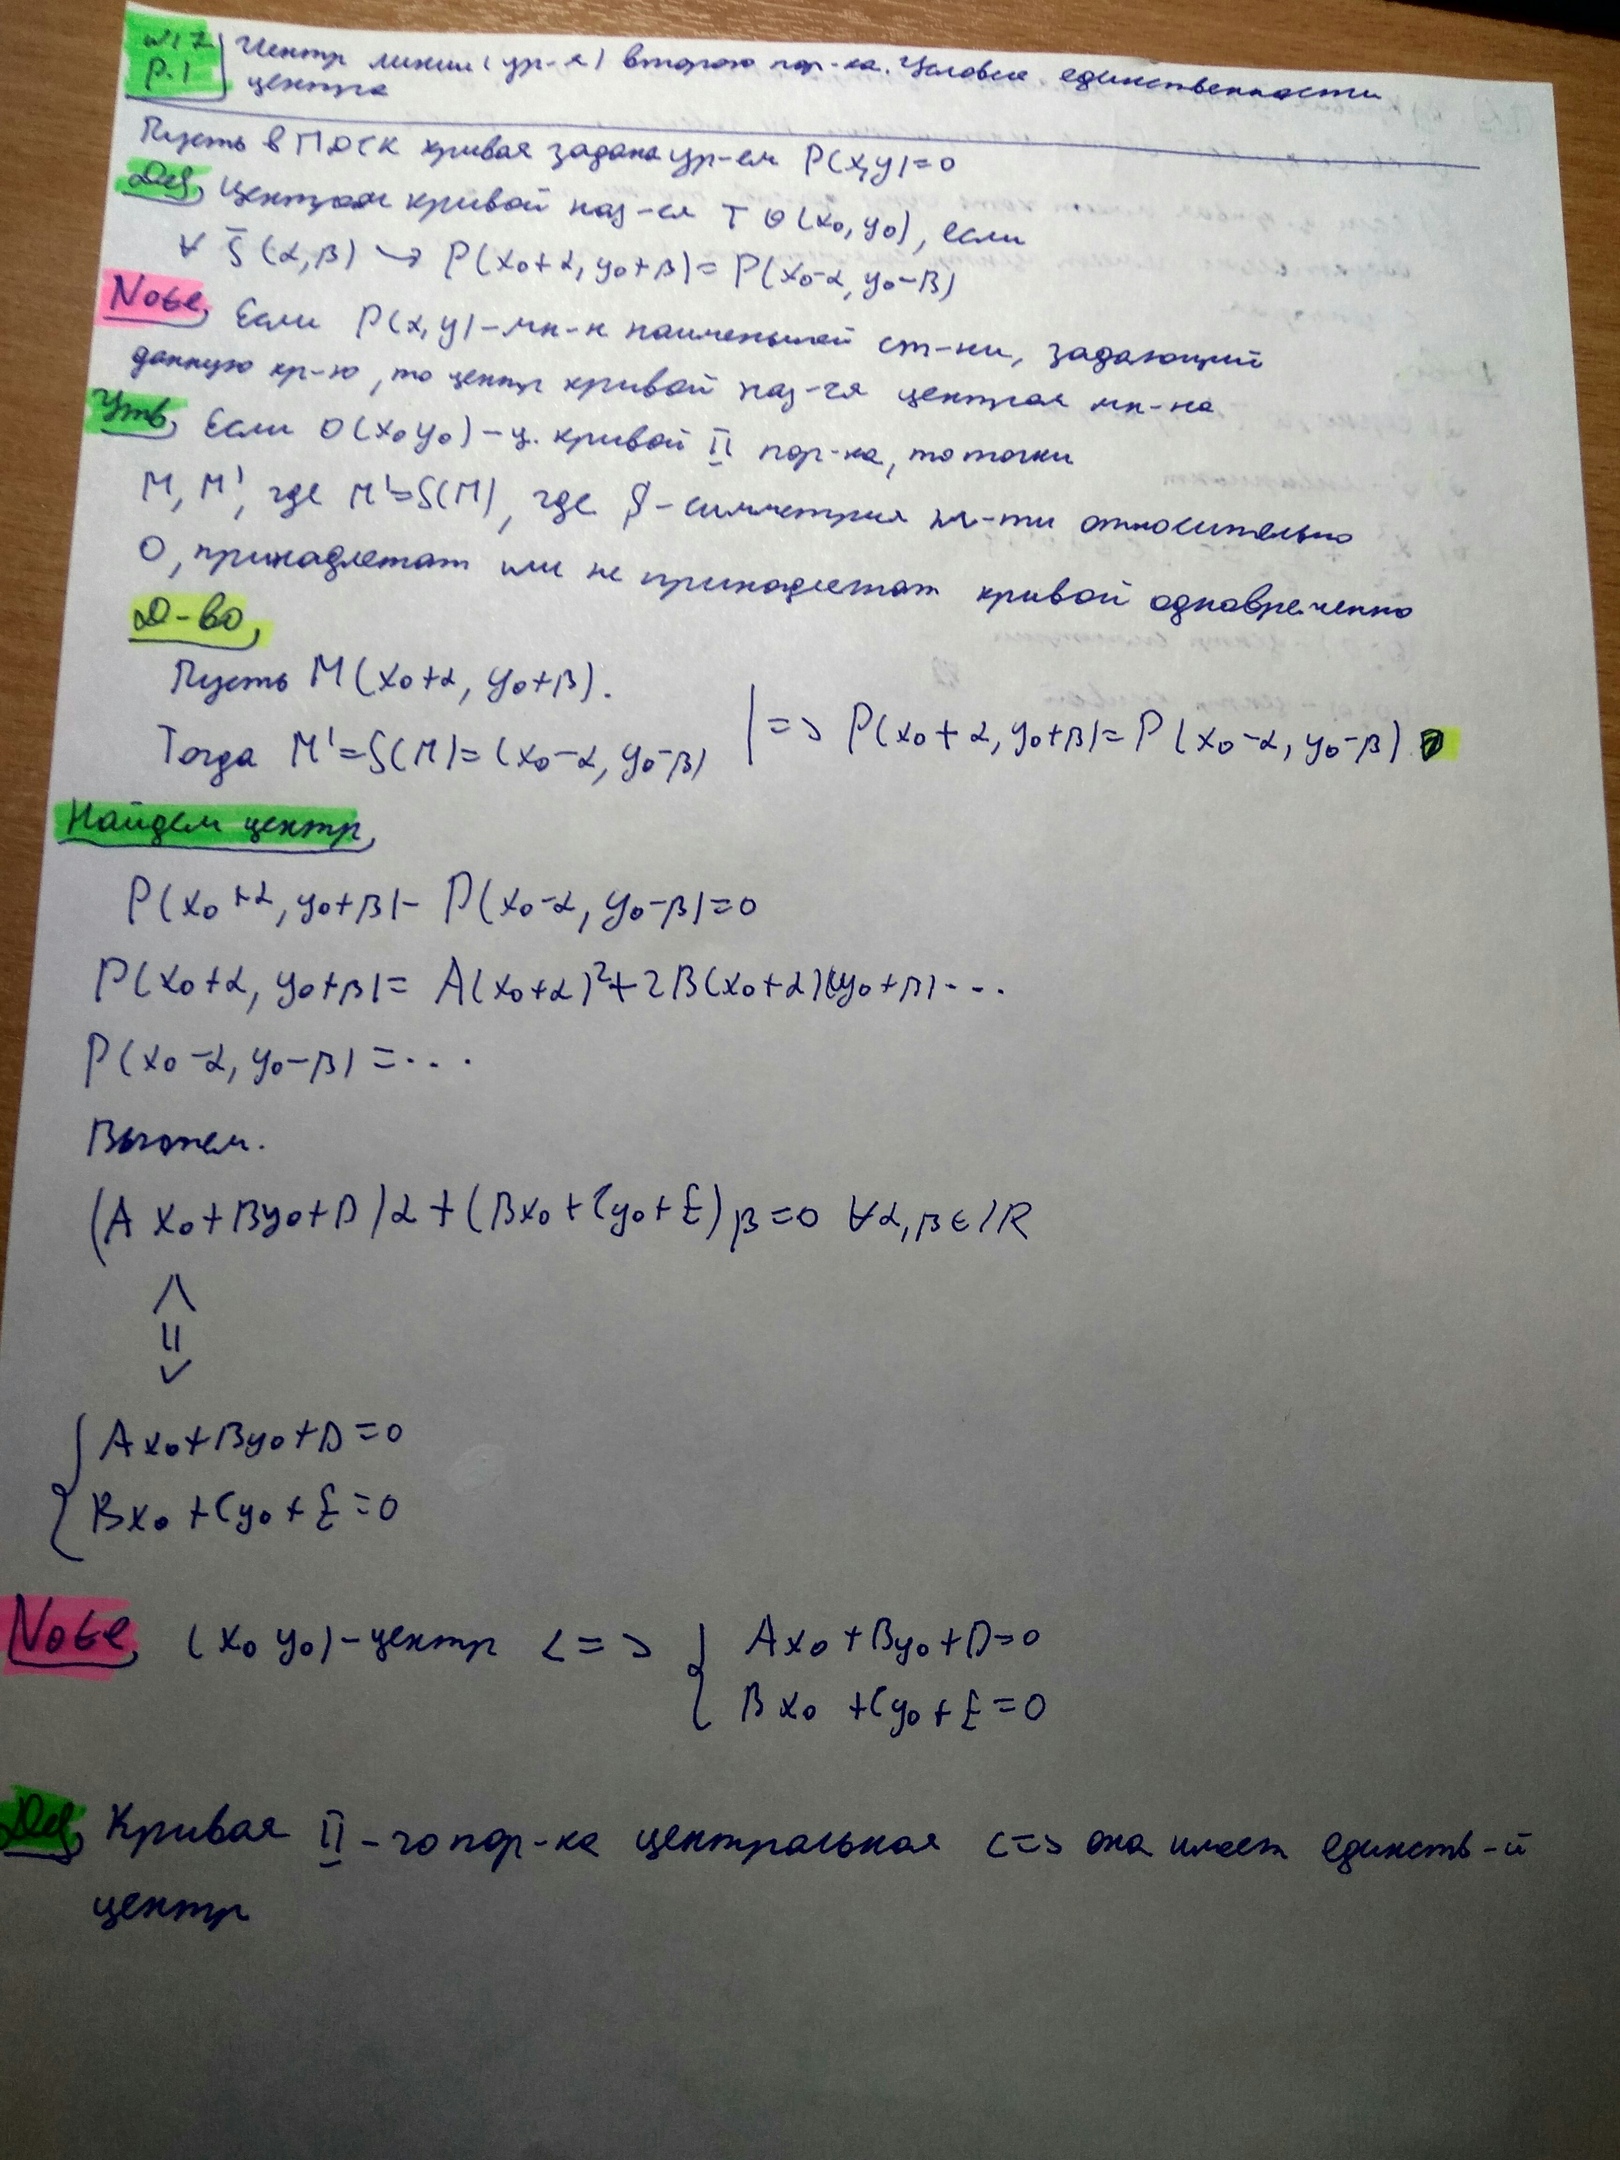 №17 Центр линии (ур-я) второго пор-ка. Условие единственности
р.1 центра
Пусть в ПДСК кривая задана ур-ем P(x,y)=0
Def, Центром кривой наз-ся т O(x₀,y₀), если
∀ ξ̄(α,β) ↪ P(x₀+α, y₀+β)=P(x₀-α, y₀-β)
Note, Если P(x,y)-мн-н наименьшей ст-ни, задающий
данную кр-ю, то центр кривой наз-ся центром мн-на
Утв, Если O(x₀ y₀)-ц. кривой II пор-ка, то точки
M, M', где M'=S(M), где S-симметрия пл-ти относительно
O, принадлежат или не принадлежат кривой одновременно
Д-во,
Пусть M(x₀+α, y₀+β).
Тогда M'=S(M)=(x₀-α, y₀-β) | => P(x₀+α, y₀+β)=P(x₀-α, y₀-β)
Найдем центр,
P(x₀+α, y₀+β)-P(x₀-α, y₀-β)=0
P(x₀+α, y₀+β)= A(x₀+α)²+2B(x₀+α)(y₀+β)...
P(x₀-α, y₀-β)=...
Вычтем.
(Ax₀+By₀+D)α+(Bx₀+Cy₀+E)β=0 ∀α,β∈ℝ
⇕
{ Ax₀+By₀+D=0
Bx₀+Cy₀+E=0
Note, (x₀ y₀)-центр <=> { Ax₀+By₀+D=0
Bx₀+Cy₀+E=0
Def, Кривая II-го пор-ка центральная <=> она имеет единств-й
центр